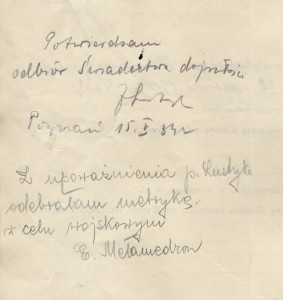 Potwierdzam
odbiór Świadectwa dojrzałości
Poznań 15. X 34 r
Z upoważnienia p. Ludyta
odebrałam metrykę.
w celu wojskowym
E. Metamedron